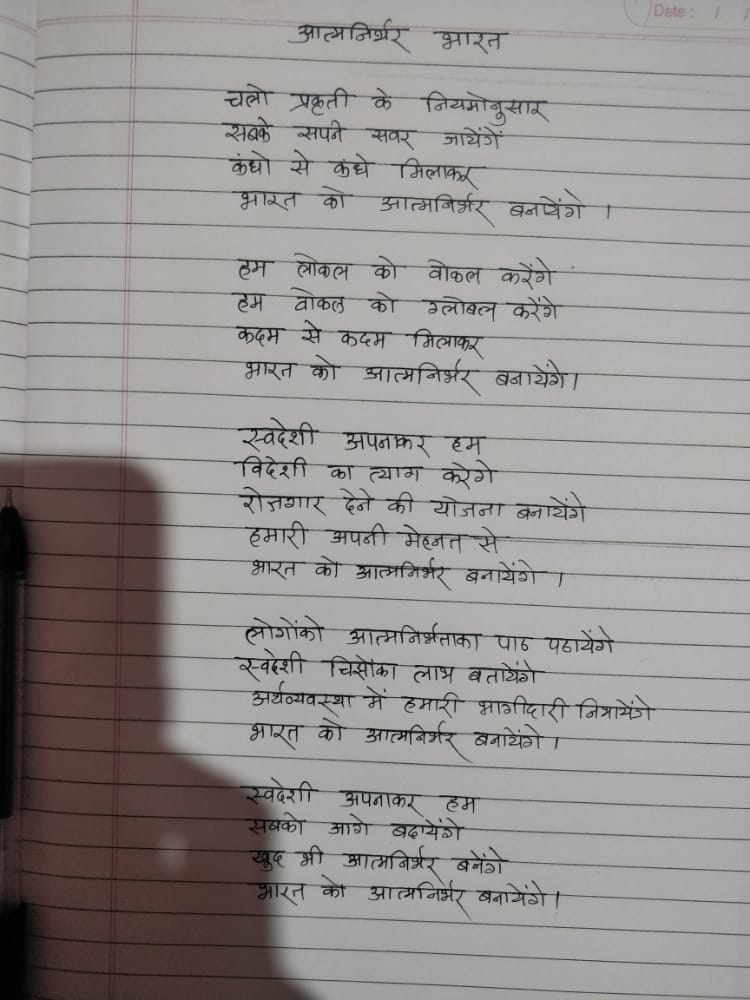 Date : / /
आत्मनिर्भर भारत
चलो प्रकृती के नियमोनुसार
सबके सपने सवर जायेंगें
कंधो से कंधे मिलाकर
भारत को आत्मनिर्भर बनायेंगे ।
हम लोकल को वोकल करेंगे
हम वोकल को ग्लोबल करेंगे
कदम से कदम मिलाकर
भारत को आत्मनिर्भर बनायेंगे ।
स्वदेशी अपनाकर हम
विदेशी का त्याग करेगे
रोजगार देने की योजना बनायेंगे
हमारी अपनी मेहनत से
भारत को आत्मनिर्भर बनायेंगे ।
लोगोंको आत्मनिर्भताका पाठ पढायेंगे
स्वदेशी चिसोका लाभ बतायेंगे
अर्थव्यवस्था में हमारी भागीदारी निभायेंगे
भारत को आत्मनिर्भर बनायेंगे ।
स्वदेशी अपनाकर हम
सबको आगे बढायेंगे
खुद भी आत्मनिर्भर बनेंगे
भारत को आत्मनिर्भर बनायेंगे ।